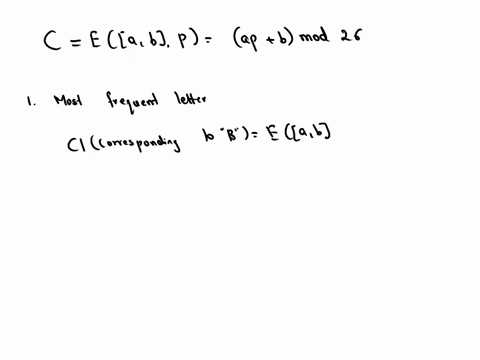 C = E ([a, b], p) = (ap + b) mod 26
1. Most frequent letter
C1 (corresponding to "B") = E ([a, b]